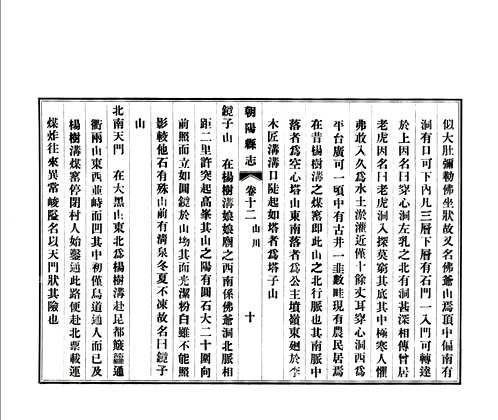 似大肚彌勒佛坐狀故又名佛爺山焉頂中偏南有
洞有口可下內凡三層下層有石門一入門可轉達
於上因名曰穿心洞左乳之北有洞甚深相傳曾居
老虎洞因名曰老虎洞入探莫窮其底其中極寒人懼
弗敢入久為水土淤漸近僅十餘丈耳穿心洞西為
平台廣可一頃中有古井一韭數畦現有農民居焉
在昔楊樹溝之煤窰即此山之北行脈也其南脈中
落者為空心塔山東南落者為公主墳嶺東廻於李
木匠溝溝口陡起如塔者為塔子山
朝陽縣志 卷十二 山川 十
鏡子山 在楊樹溝娘娘廟之西南係佛爺洞北脈相
距二里許突起高峯其山之陽有圓石大二十圍向
前照面而立如圓鏡於山坳其面光潔粉白雖不能照
影較他石有殊山前有清泉冬夏不凍故名曰鏡子
山
北南天門 在大黑山東北為楊樹溝赴昆都簸籮通
衢兩山東西並峙而凹其中初僅鳥道通人而已及
楊樹溝煤窰停閉村人始鑿通此路便赴北票載運
煤炸往來異常峻隘名以天門狀其險也